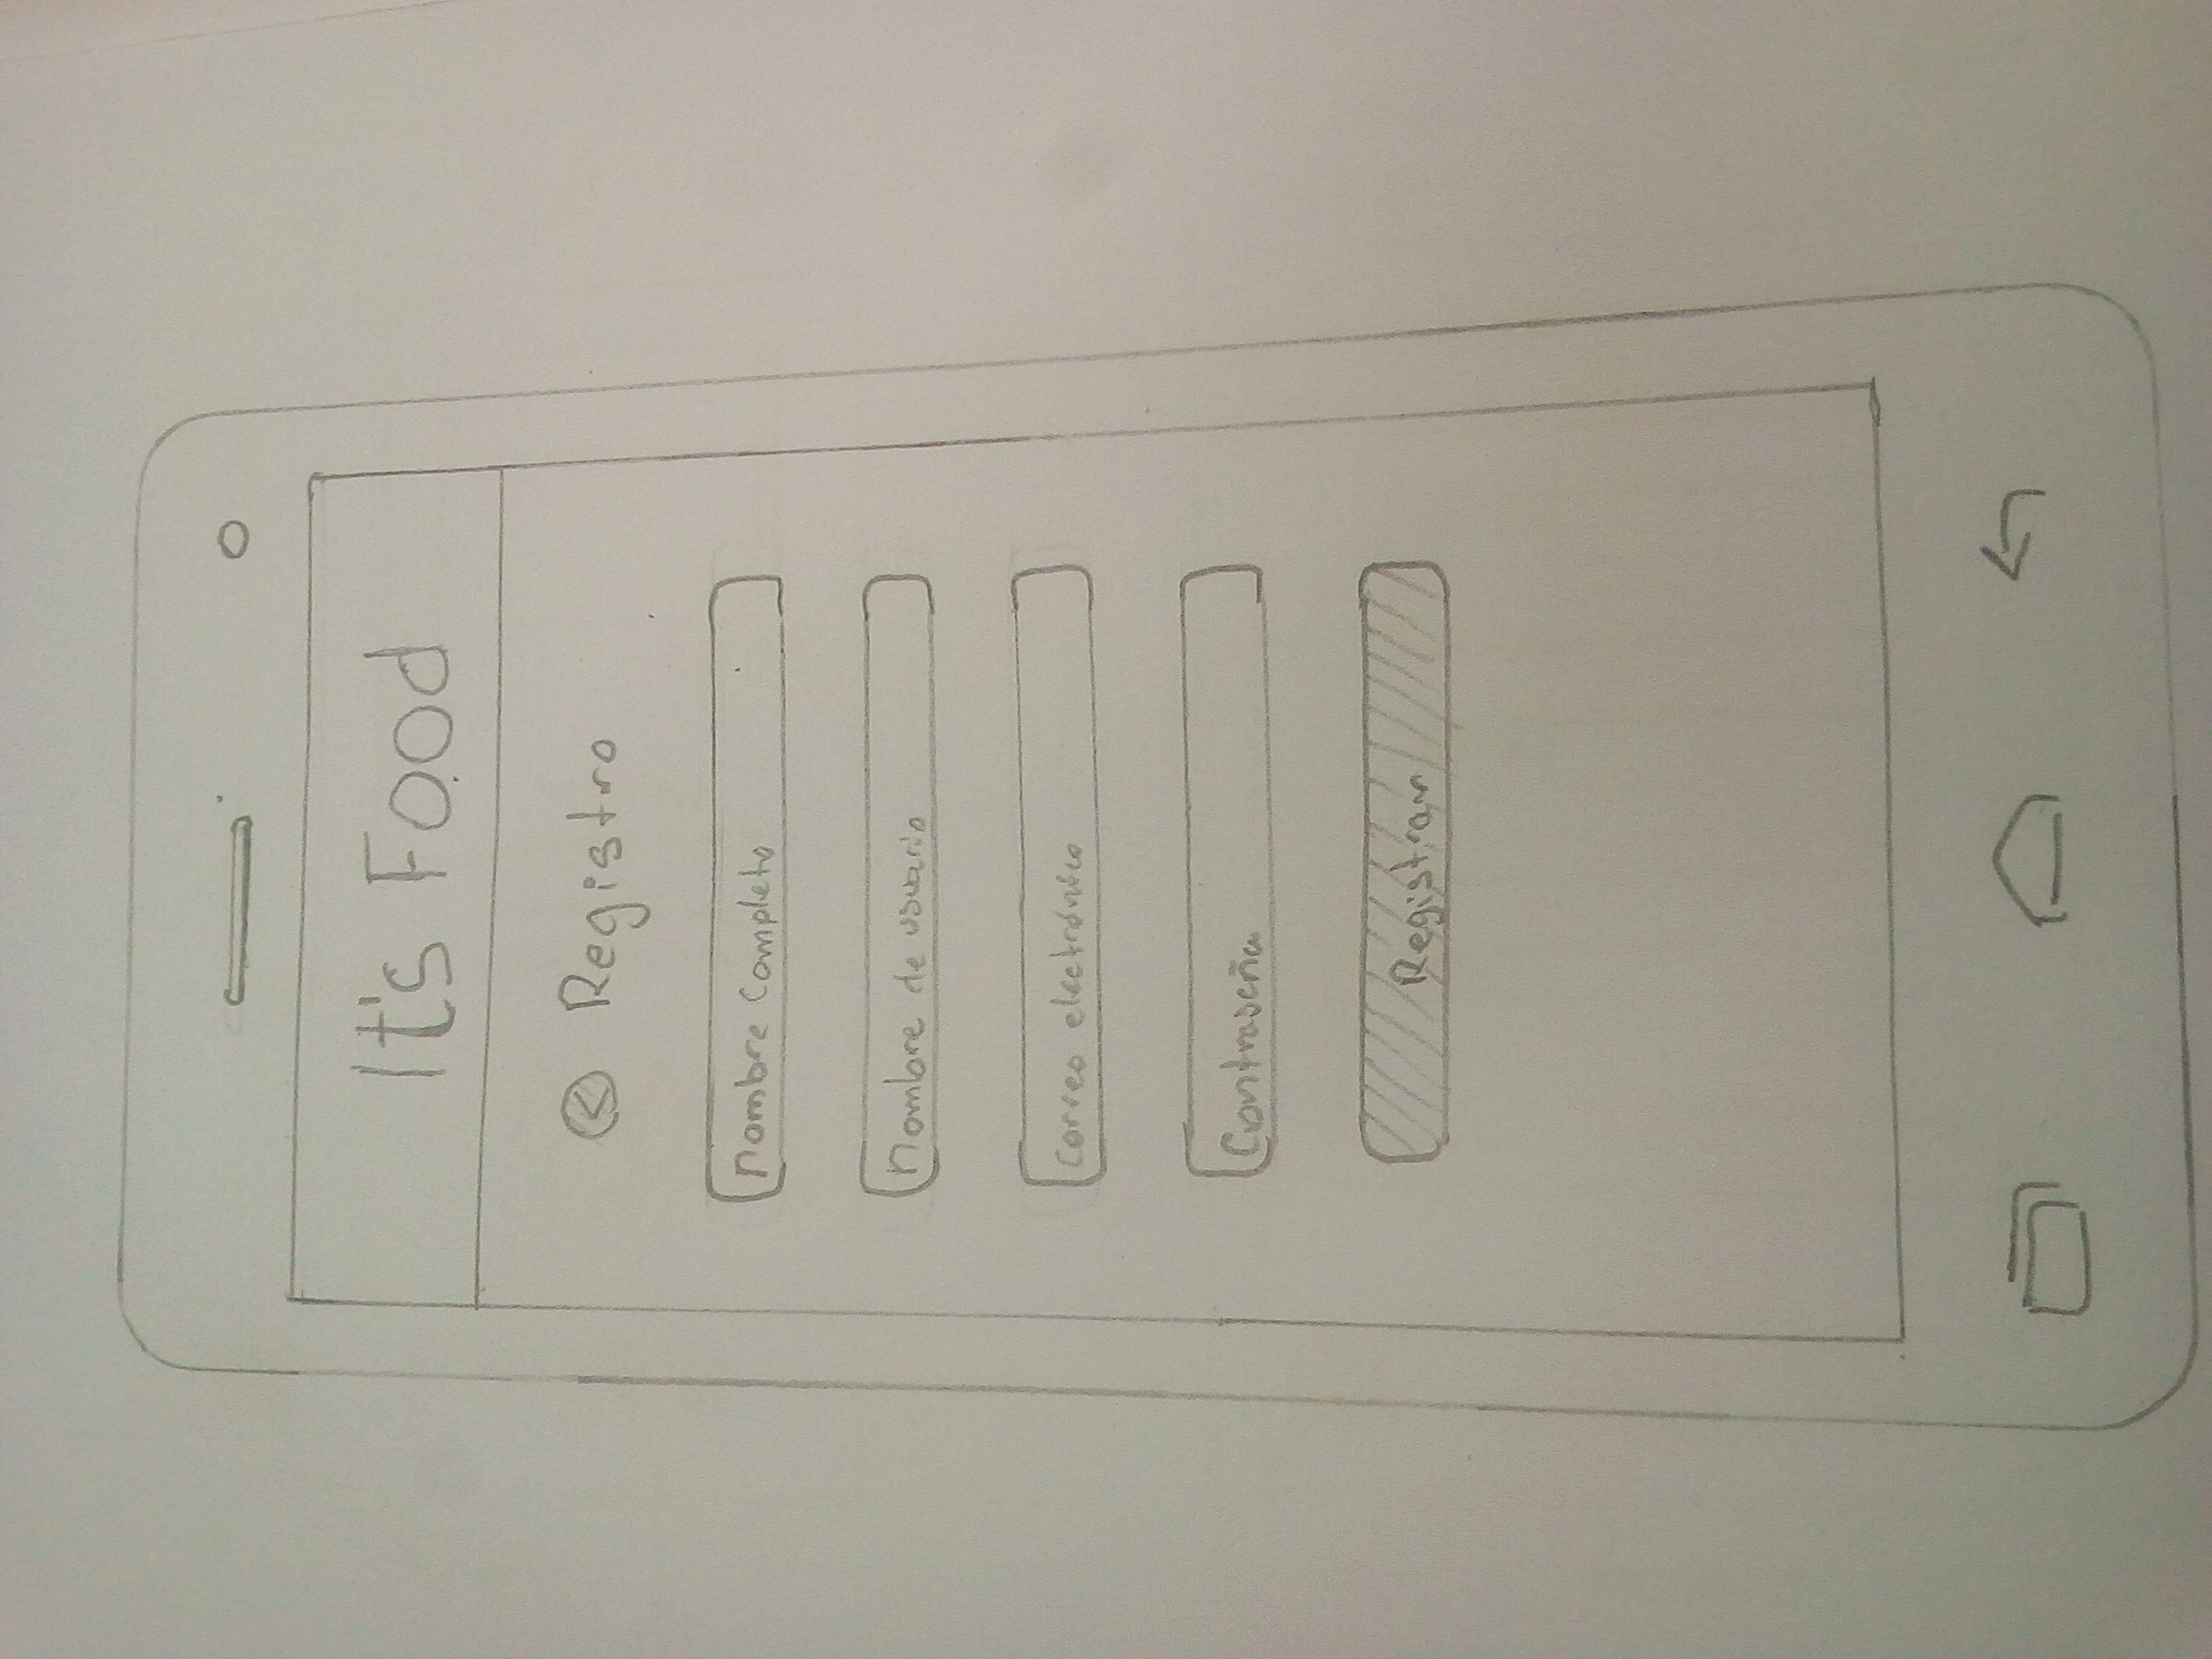 It's Food
Registro
Nombre Completo
Nombre de usuario
Correo electrónico
Contraseña
Registrar